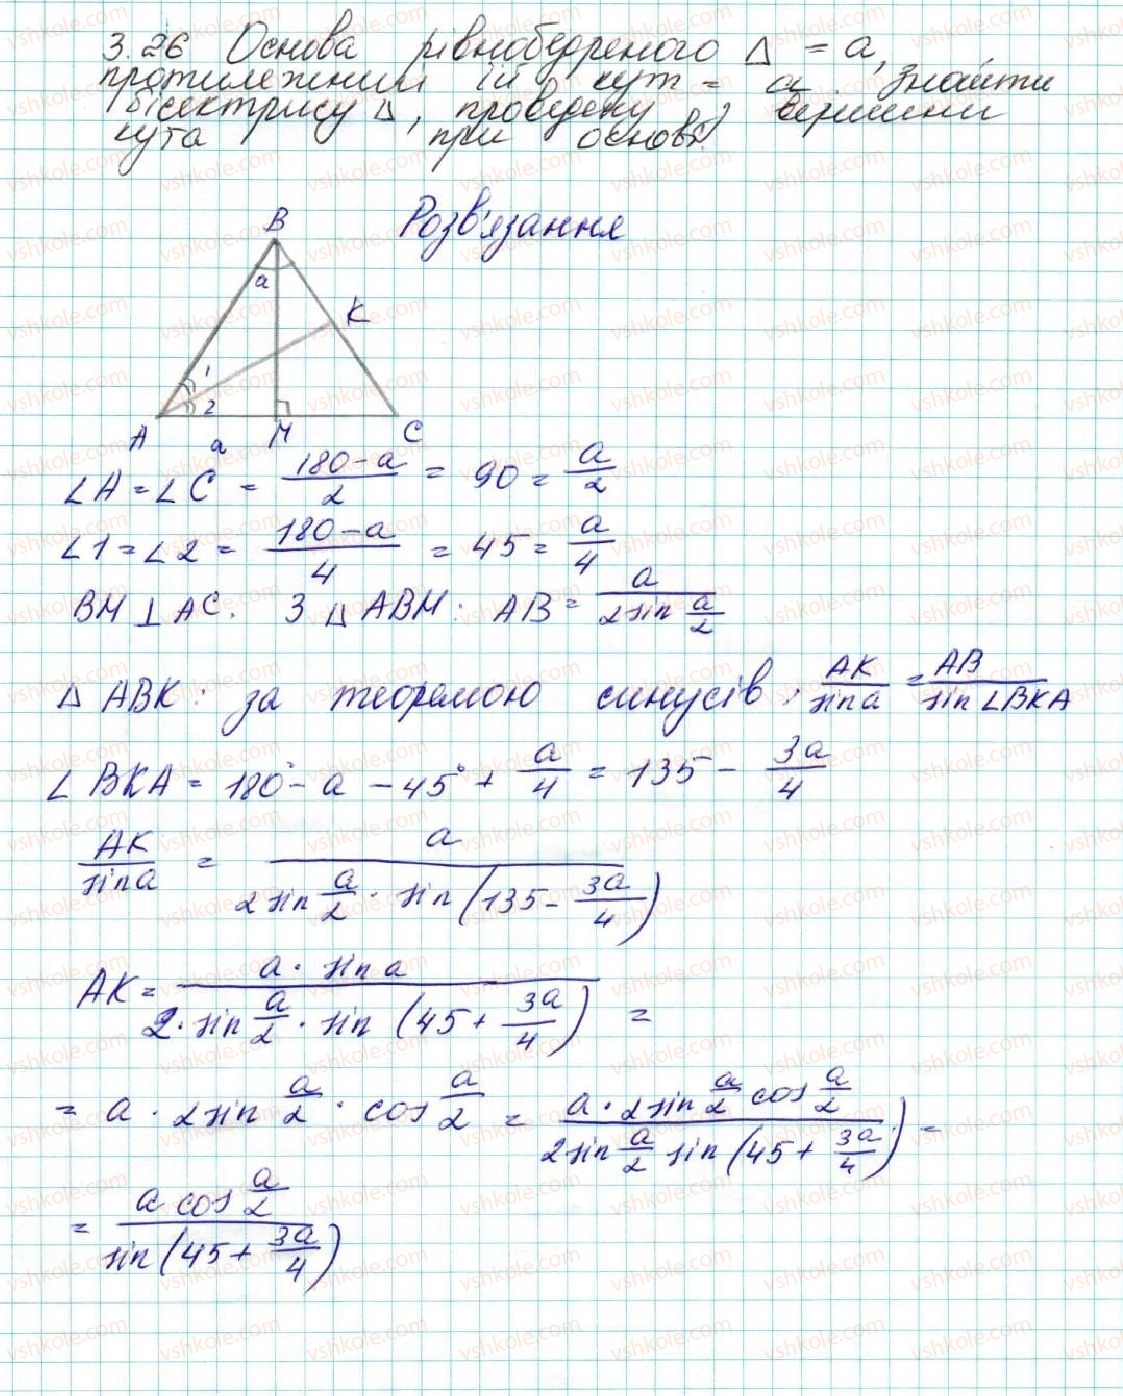 3.26 Основа рівнобедреного △ = a,
протилежний їй кут = a. знайти
бісектрису △, проведену з вершини
кута при основі.
Розв'язання
B
a
K
1
2
A a M C
∠A = ∠C = (180 - a)/2 = 90 = a/2
∠1 = ∠2 = (180 - a)/4 = 45 = a/4
BM ⊥ AC. З △ ABM: AB = a/(2 sin a/2)
△ ABK: за теоремою синусів: AK/sin a = AB/sin ∠BKA
∠BKA = 180° - a - 45° + a/4 = 135 - 3a/4
AK/sin a = a/(2 sin a/2 · sin (135 - 3a/4))
AK = a · sin a/(2 · sin a/2 · sin (45 + 3a/4)) =
= a · 2 sin a/2 · cos a/2 = a · 2 sin a/2 cos a/2/(2 sin a/2 sin (45 + 3a/4)) =
= a cos a/2/sin (45 + 3a/4)
vshkole.com